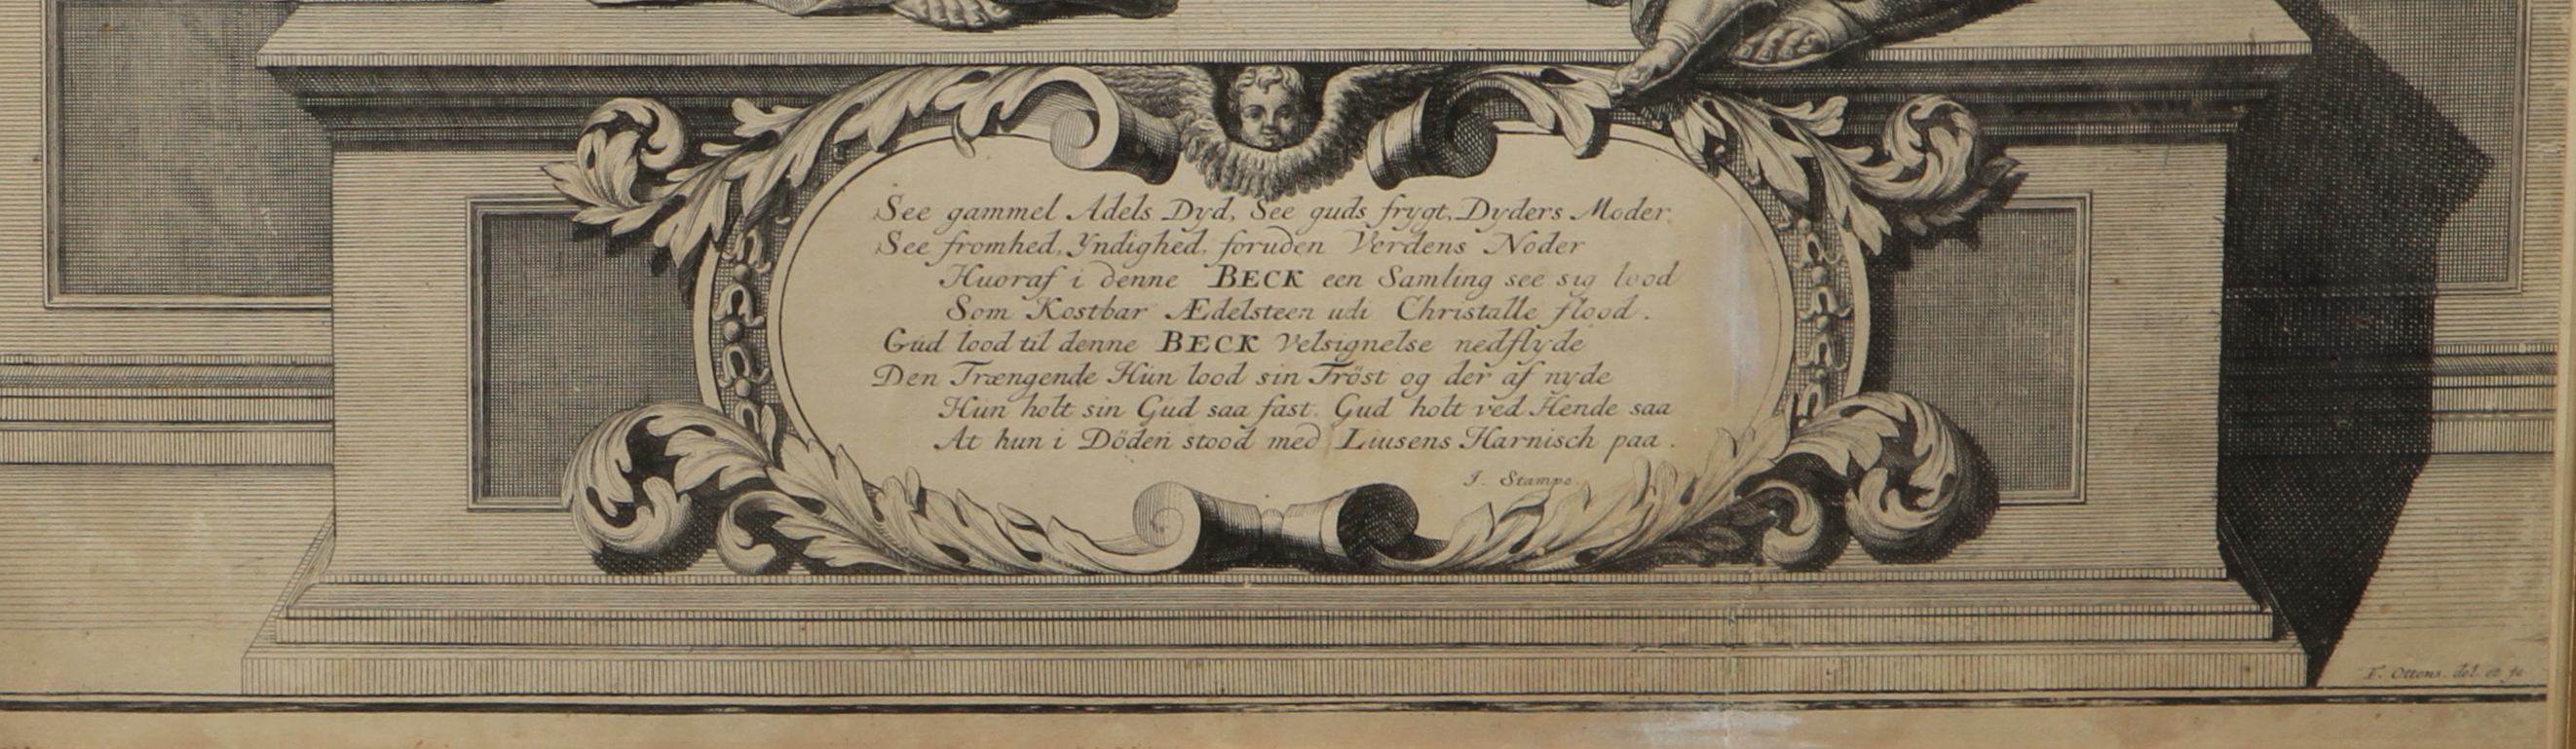 See gammel Adels Dyd, See guds frygt, Dyders Moder
See fromhed, Yndighed, foruden Verdens Noder
Huoraf i denne BECK een Samling see sig lood
Som Kostbar Ædelsteen udi Christalle flood.
Gud lood til denne BECK Velsignelse nedflyde
Den Trængende Hun lood sin Tröst og der af nyde
Hun holt sin Gud saa fast. Gud holt ved Hende saa
At hun i Döden stood med Liusens Harnisch paa.
J. Stampe.
F. Ottens. del. et fe